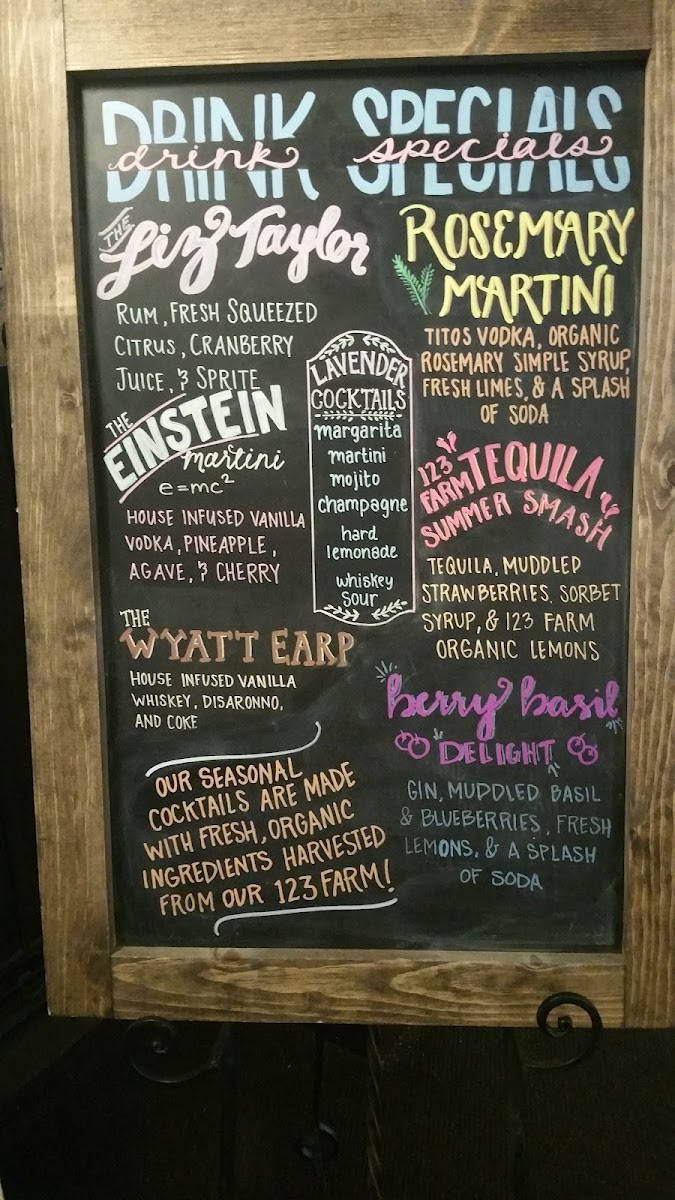 DRINK SPECIALS
drink specials
THE
Liz Taylor
RUM, FRESH SQUEEZED
CITRUS, CRANBERRY
JUICE, & SPRITE
THE
EINSTEIN
martini
e=mc²
HOUSE INFUSED VANILLA
VODKA, PINEAPPLE,
AGAVE, & CHERRY
THE
WYATT EARP
HOUSE INFUSED VANILLA
WHISKEY, DISARONNO,
AND COKE
OUR SEASONAL
COCKTAILS ARE MADE
WITH FRESH, ORGANIC
INGREDIENTS HARVESTED
FROM OUR 123 FARM!
LAVENDER
COCKTAILS
margarita
martini
mojito
champagne
hard
lemonade
whiskey
sour
ROSEMARY
MARTINI
TITOS VODKA, ORGANIC
ROSEMARY SIMPLE SYRUP,
FRESH LIMES, & A SPLASH
OF SODA
123
FARM TEQUILA
SUMMER SMASH
TEQUILA, MUDDLED
STRAWBERRIES, SORBET
SYRUP, & 123 FARM
ORGANIC LEMONS
berry basil
DELIGHT
GIN, MUDDLED BASIL
& BLUEBERRIES, FRESH
LEMONS, & A SPLASH
OF SODA